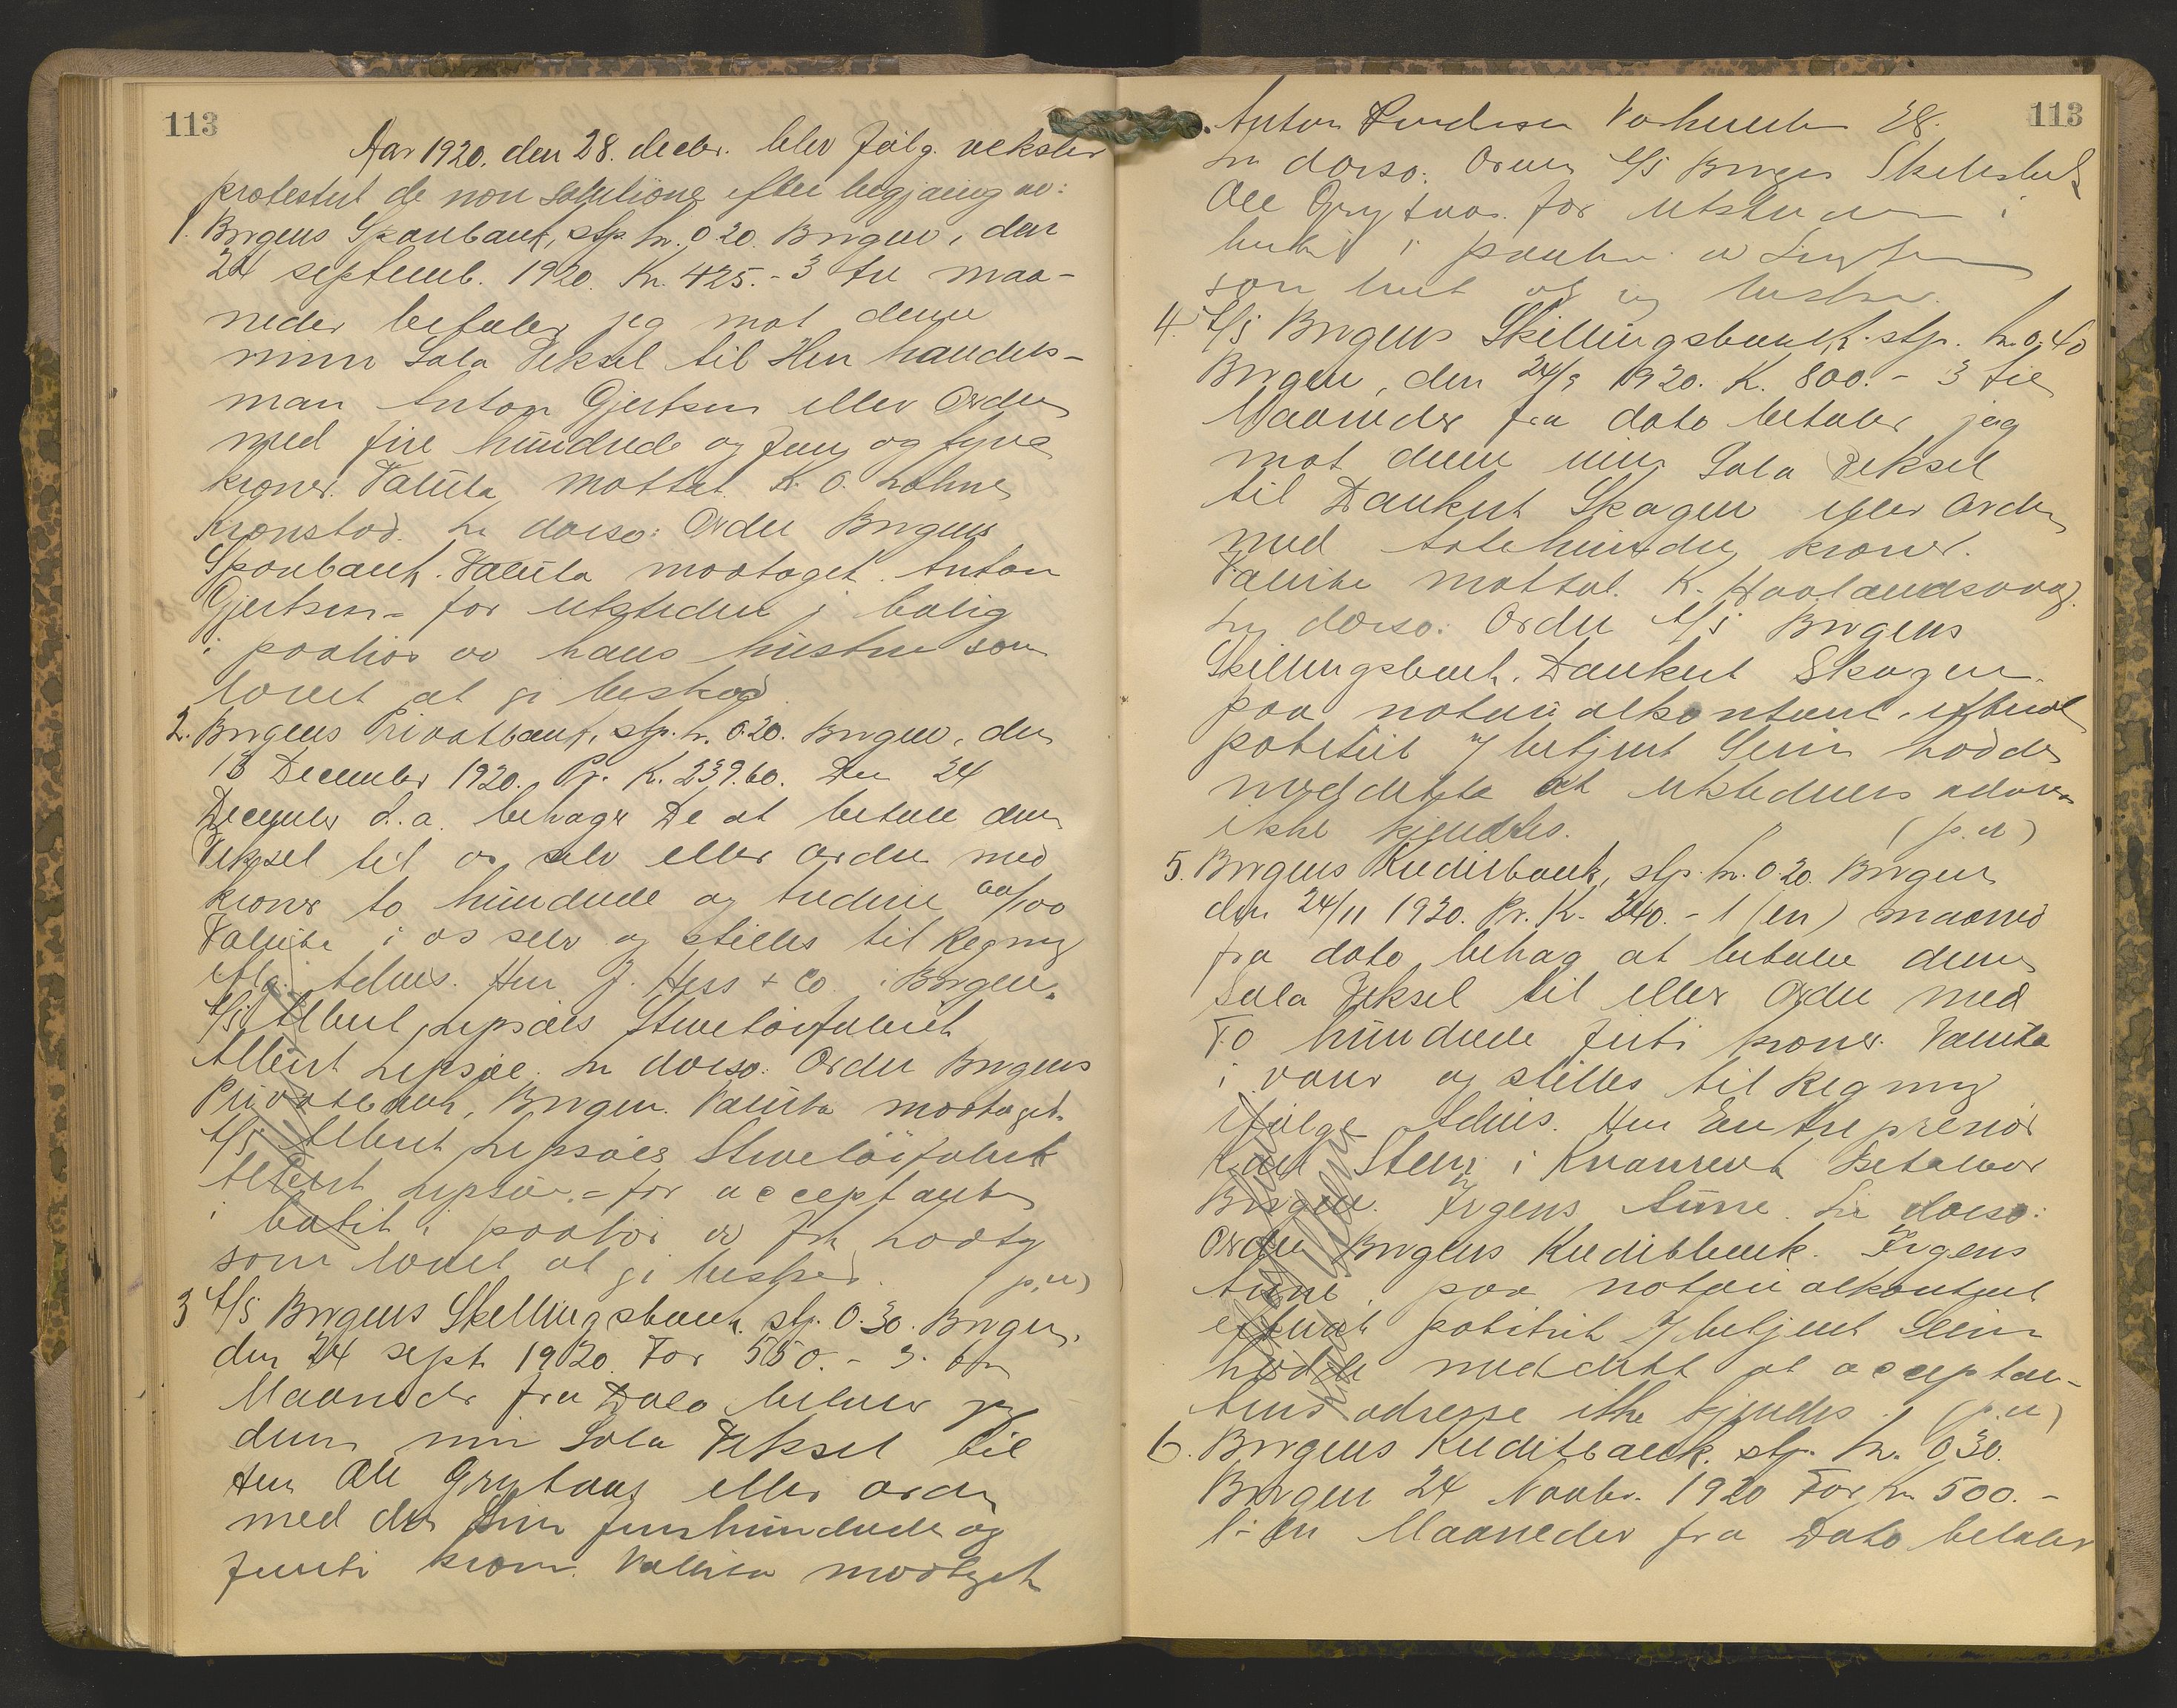 113
Aar 1920. den 28. decbr. blev følg. veksler
protestert de non solutione efter begjæring av:
1. Bergens Sparebank, stp. kr. 0.20. Bergen, den
24 septemb. 1920. Kr. 425.- 3 tre maa-
neder betaler jeg mot denne
min Sola Veksel til Herr handels-
man Anton Gjertsen eller Ordre
med fire hundrede og fem og tyve
kroner. Valuta mottat. K. O. Lohne
Kronstad. In dorso: Ordre Bergens
Sparebank. Valuta modtaget. Anton
Gjertsen = for utstederen i bolig
i paahør av hans hustru som
lovet at gi beskjed
2. Bergens Privatbank, stp. kr. 0.20. Bergen, den
13 December 1920. Pr. K. 239.60. Den 24
December d.a. behager De at betale denne
Veksel til os selv eller ordre med
kroner to hundrede og tredive 60/100
Valuta i os selv og stilles til Regning
ifølg. advis. Herr J. Hess & Co. i Bergen.
A/S Albert Lepsøes Stivelsefabrik
Albert Lepsøe. In dorso: Ordre Bergens
Privatbank, Bergen. Valuta modtaget.
A/S Albert Lepsøes Stivelsefabrik
Albert Lepsøe. = for acceptanten
i butik i paahør av frk.
som lovet at gi beskjed. (p.u)
3 A/S Bergens Skillingsbank stp. 0.30. Bergen,
den 24 sept. 1920. For 550.- 3. tre
Maaneder fra Dato betaler jeg
denne min Sola Veksel til
Herr Ole Grytaas eller ordre
med den Sum femhundrede og
femti kroner. Valuta modtaget
113
Anton 28.
In dorso: Ordre A/S Bergens Skillingsbank
Ole Grytaas. for utstederen i
i paahør av
som lovet at gi beskjed.
4. A/S Bergens Skillingsbank, stp. kr. 0.40
Bergen, den 24/9 1920. K. 800.- 3 tre
Maaneder fra dato betaler jeg
mot denne min Sola Veksel
til Dankert Skagen eller Ordre
med ottehundrede kroner.
Valuta mottat. K. Haalandsvaag.
In dorso: Ordre A/S Bergens
Skillingsbank. Dankert Skagen.
paa notarialkontoret, efterat
politiet v/ betjent Seim hadde
meddelt at utstederens adresse
ikke kjendtes. (p.u)
5. Bergens Kreditbank, stp. kr. 0.20. Bergen
den 24/11 1920. Pr. Kr. 240.- 1 (en) maaned
fra dato behag at betale denne
Sola Veksel til eller Ordre med
To hundrede firti kroner. Valuta
i varer og stilles til Regning
ifølge advis. Herr Entreprenør
Stein i Knarvik Betalbar
Bergen. Jørgens Aune. In dorso:
Ordre Bergens Kreditbank. Jørgens
Aune, paa notarialkontoret
efterat politiet v/ betjent Seim
hadde meddelt at acceptan-
tens adresse ikke kjendes. (p.u)
6. Bergens Kreditbank, stp. kr. 0.30.
Bergen 24 Novbr. 1920 For Kr 500.-
1- En Maaneder fra Dato betaler